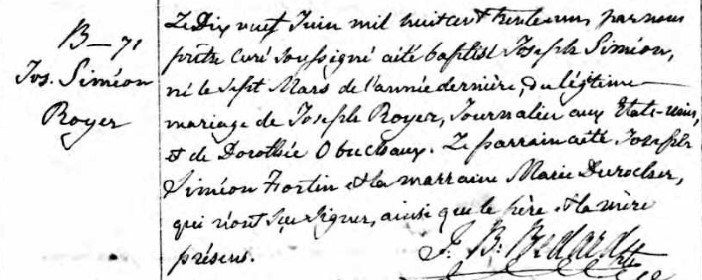 B—71
Jos. Siméon
Royer
Le Dix neuf Juin mil huit cent trente un par nous
prêtre curé soussigné a été baptisé Joseph Siméon,
né le sept Mars de l'année dernière, du légitime
mariage de Joseph Royer, Journalier aux Etats-unis,
et de Dorothée Obuchaux. Le parrain a été Joseph
Siméon Fortin et la marraine Marie Durocher,
qui n'ont sçu signer, ainsi que le père et la mère
présens.
J. B. Bédard Ptre